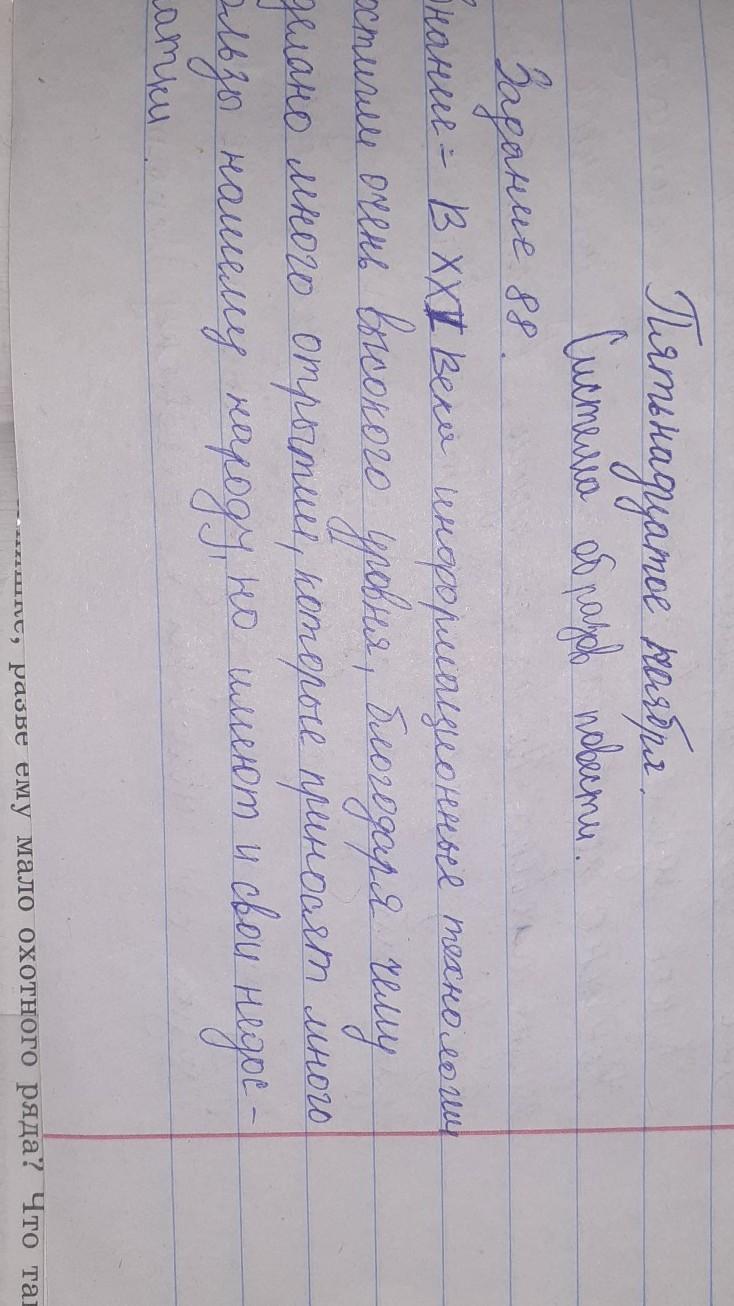 Пятьнадцатое ноября.
Система образов повести.
Задание 88.
нание - В XXI века информационные технологии
остигли очень высокого уровня, благодаря чему
делано много отрытий, которые приносят много
ользы нашему народу, но имеют и свои недос-
атки.
разве ему мало охотного ряда? Что та